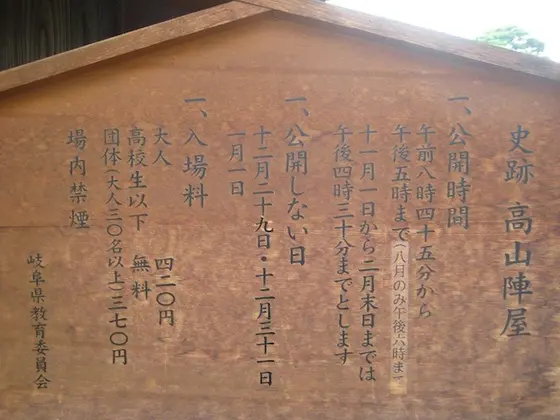 史跡 高山陣屋
一、公開時間
午前八時四十五分から
午後五時まで(八月のみ午後六時まで
十一月一日から二月末日までは
午後四時三十分までとします
一、公開しない日
十二月二十九日・十二月三十一日
一月一日
一、入場料
大人 四二〇円
高校生以下 無料
団体(大人三〇名以上)三七〇円
場内禁煙
岐阜県教育委員会